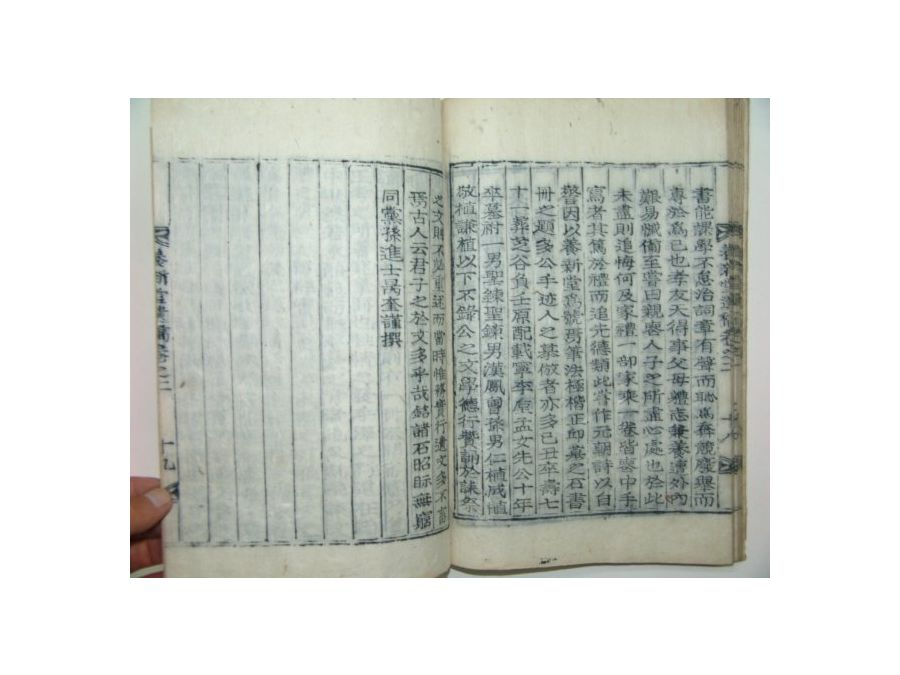 書能課學不怠治詞章有聲而恥爲奔競廢擧而
專於爲己也孝友天得事父母體志兼養遭外內
艱易戚備至嘗曰親喪人子之所盡心處也於此
未盡則追悔何及家禮一部家乘一卷皆喪中手
寫者其篤於禮而追先德類此嘗作元朝詩以自
警因以養新堂爲號焉筆法極楷正邱墓之石書
冊之題多公手迹人之慕倣者亦多己丑卒壽七
十一葬芝谷負壬原配載寧李 孟文先公十年
卒墓祔一男聖鍊聖鍊男漢鳳曾孫男仁植 植
敬植謙植以下不錄公之文學德行 於誄祭
之文則不必重述而當時惟務實行遺文多不畜
焉古人云君子之於文多乎哉銘諸石昭眎無窮
同黨孫進士禼奎謹撰
養新堂遺稿卷之二
十九